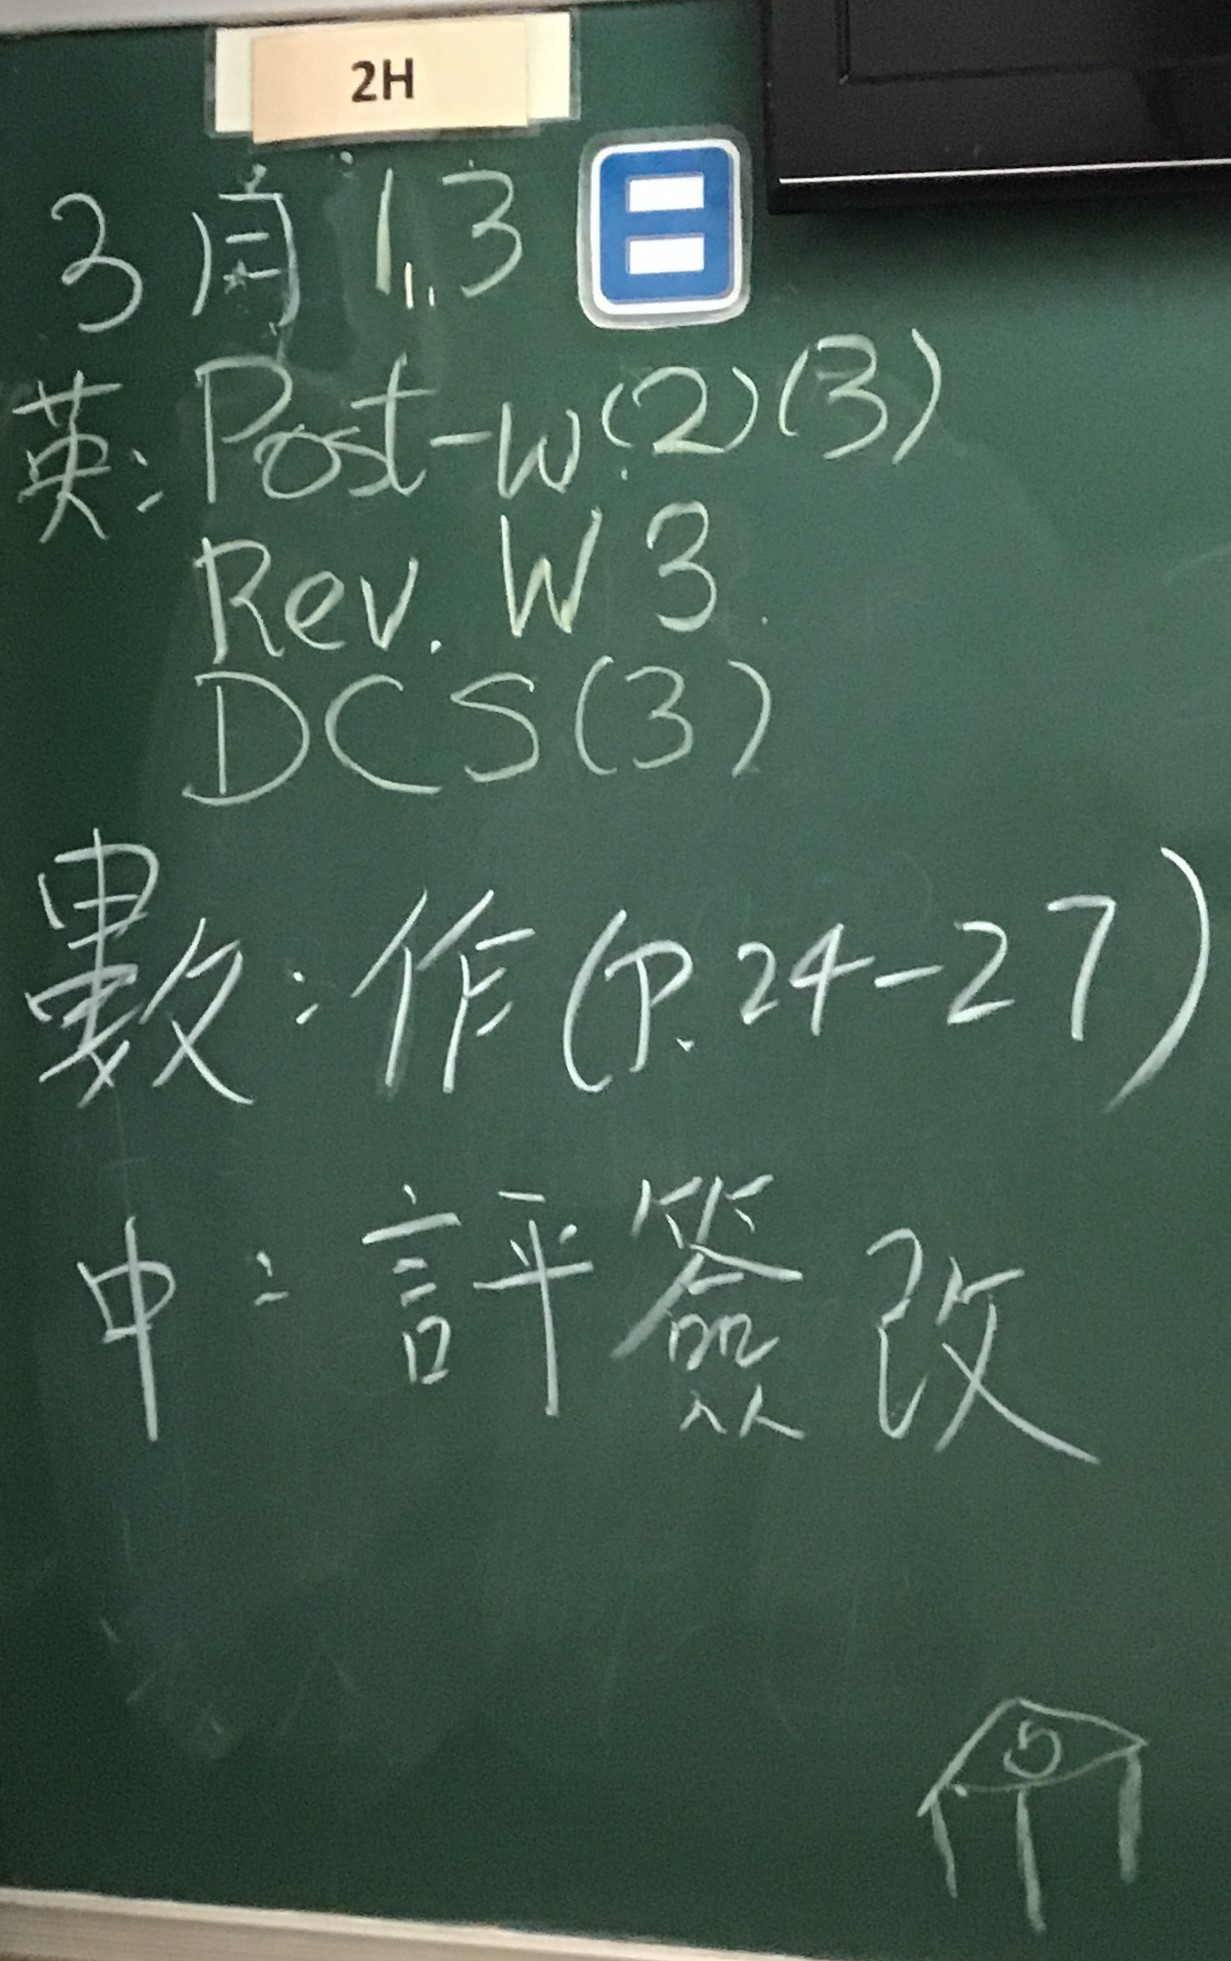 2H
3月13日
英: Post-W(2)(3)
Rev. W3
DCS(3)
數: 作(P.24-27)
中: 評簽改
5